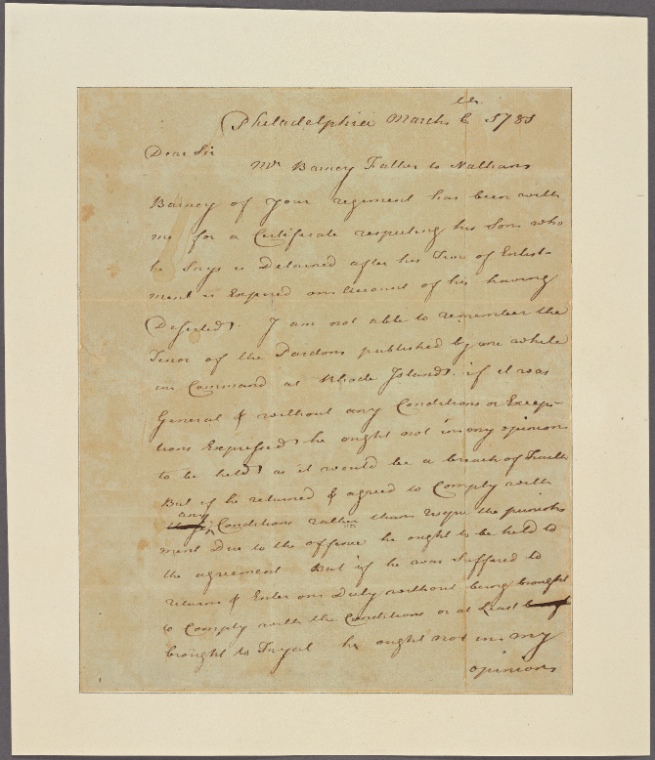 Philadelphia March 6th 1781
Dear Sir
Mr Barney Father to Nathan
Barney of your regiment has been with
me for a Certificate respecting his Son who
he Says is Detained after his Time of Enlist-
ment is Expired on Account of his having
Deserted. I am not able to remember the
Tenor of the Pardon published by me while
in Command at Rhode Island. if it was
General & without any Conditions or Excep-
tions Expressed he ought not in my opinion
to be held as it would be a breach of Faith
But if he returned & agreed to Comply with
any
Conditions rather than the punish
ment Due to the offence he ought to be held to
the agreement But if he was Suffered to
return & Enter on Duty without being brought
to Comply with the Conditions or at Least
brought to Tryal he ought not in my
opinion